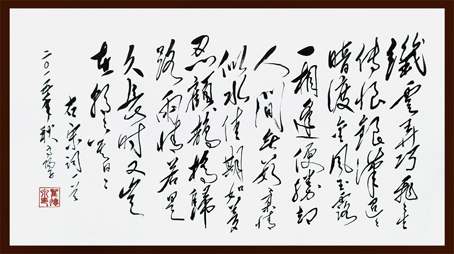 纖雲弄巧飛星
傳恨銀漢迢迢
暗渡金風玉露
一相逢便勝却
人間無數柔情
似水佳期如夢
忍顧鵲橋歸
路兩情若是
久長時又豈
在朝朝暮暮
宋詞
二〇一 年秋